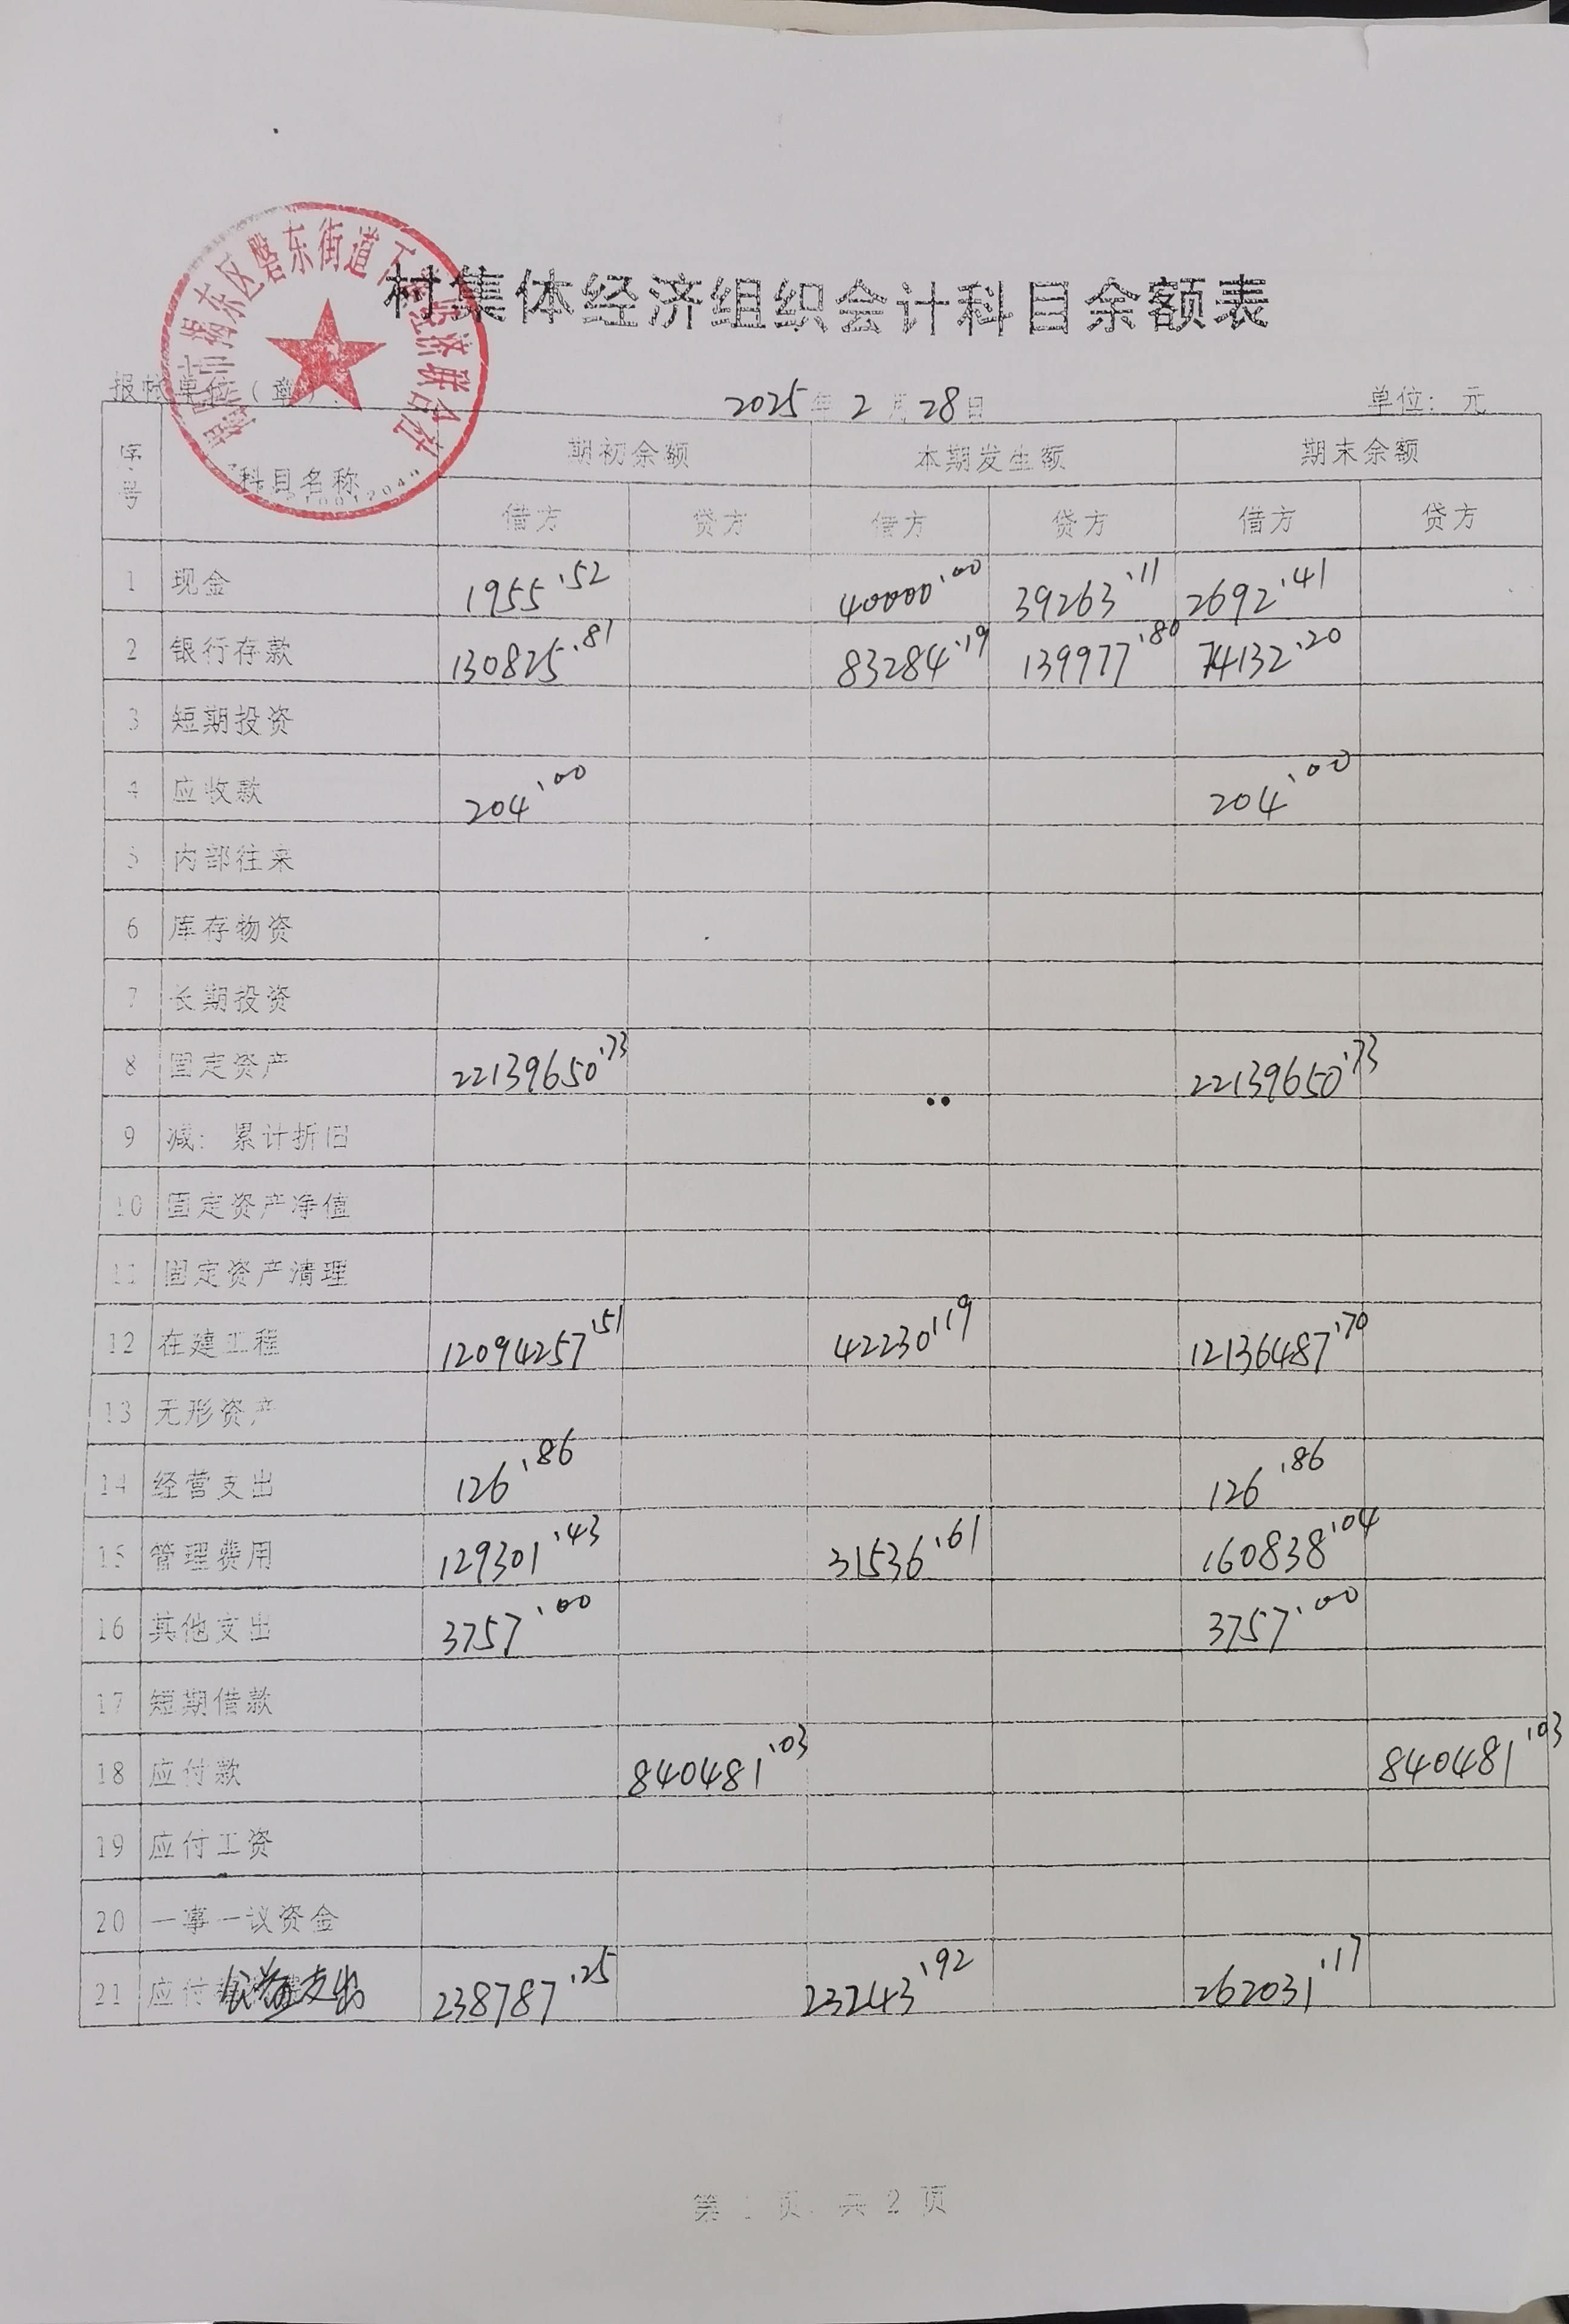 村集体经济组织会计科目余额表
揭东区磐东街道
经济联合社
报帐单位（章）： 2025年2月28日 单位：元
序号 科目名称 期初余额 本期发生额 期末余额
借方 贷方 借方 贷方 借方 贷方
1 现金 1955.52 40000.00 39263.11 2692.41
2 银行存款 130825.81 83284.19 139977.80 74132.20
3 短期投资
4 应收款 204.00 204.00
5 内部往来
6 库存物资
7 长期投资
8 固定资产 22139650.73 22139650.73
9 减：累计折旧
10 固定资产净值
11 固定资产清理
12 在建工程 12094257.51 42230.19 12136487.70
13 无形资产
14 经营支出 126.86 126.86
15 管理费用 129301.43 31536.61 160838.04
16 其他支出 3757.00 3757.00
17 短期借款
18 应付款 840481.03 840481.03
19 应付工资
20 一事一议资金
21 应付 公益支出 238787.25 23243.92 262031.17
第1页，共2页